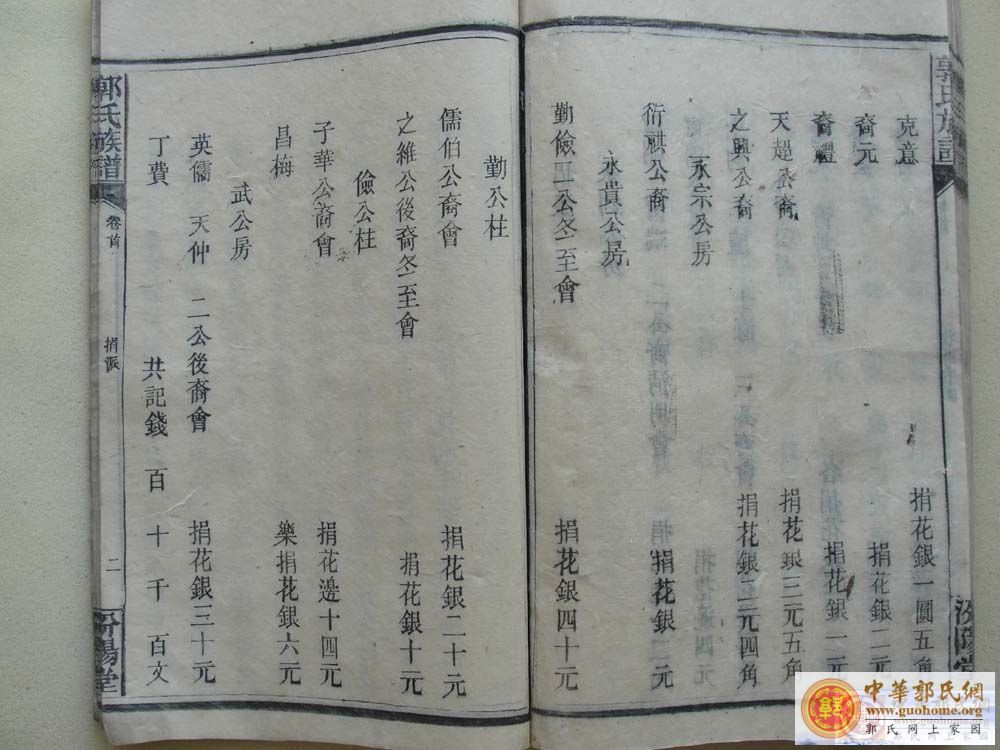 郭氏族譜
汾陽堂
克意 捐花銀一圓五角
裔元 捐花銀二元
裔禮 捐花銀一元
天趙公裔 捐花銀三元五角
之興公裔 捐花銀二元四角
永宗公房
衍麒公裔 捐花銀二元
永貴公房
勤儉二公冬至會 捐花銀四十元
勤公柱
儒伯公裔會 捐花銀二十元
之維公後裔冬至會 捐花銀十元
儉公柱
子華公裔會 捐花邊十四元
昌梅 樂捐花銀六元
武公房
英儒 天仲 二公後裔會 捐花銀三十元
丁費 共記錢 百 十 千 百文
郭氏族譜 卷首 捐派 二 汾陽堂
中華郭氏網
www.guohome.org
郭氏網上家園